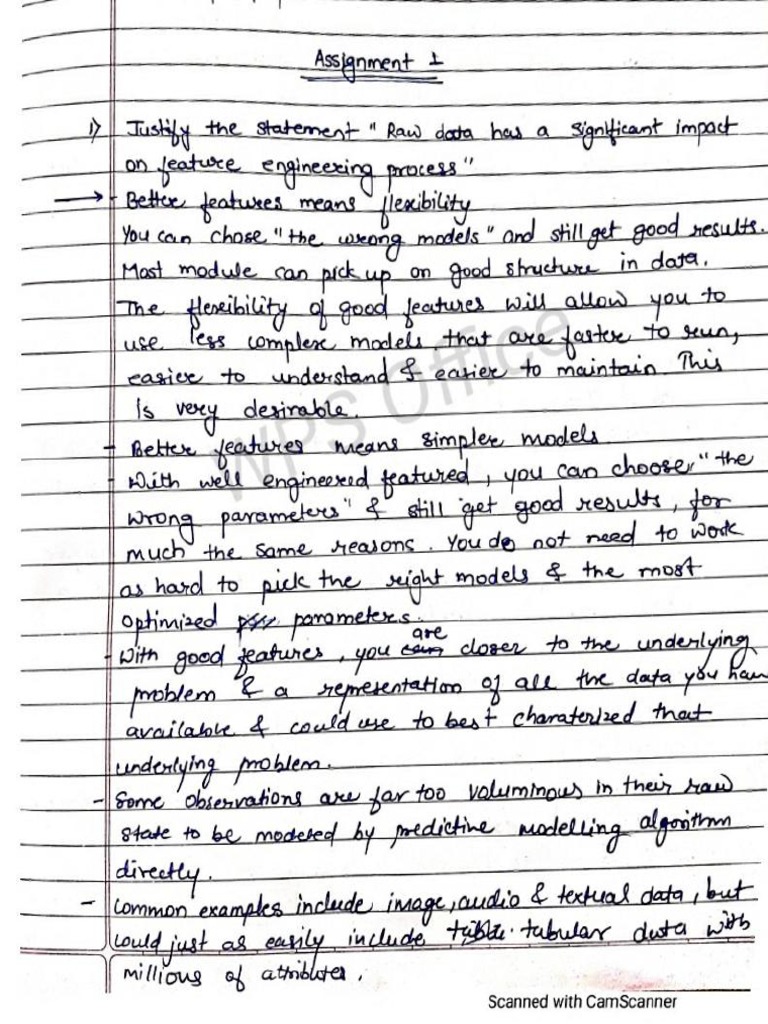 Assignment 1
1) Justify the statement "Raw data has a significant impact
on feature engineering process"
→ - Better features means flexibility
You can chose "the wrong models" and still get good results.
Most module can pick up on good structure in data.
The flexibility of good features will allow you to
use less complex models that are faster to run,
easier to understand & easier to maintain This
is very desirable.
- Better features means simpler models
- With well engineered featured, you can choose "the
wrong parameters" & still get good results, for
much the same reasons. You do not need to work
as hard to pick the right models & the most
optimized parameters.
- With good features, you are closer to the underlying
problem & a representation of all the data you have
available & could use to best charaterized that
underlying problem.
- Some observations are far too voluminous in their raw
state to be modeled by predictive modelling algorithm
directly.
- Common examples include image, audio & textual data, but
could just as easily include tabular data with
millions of attributes.
WPS Office
Scanned with CamScanner